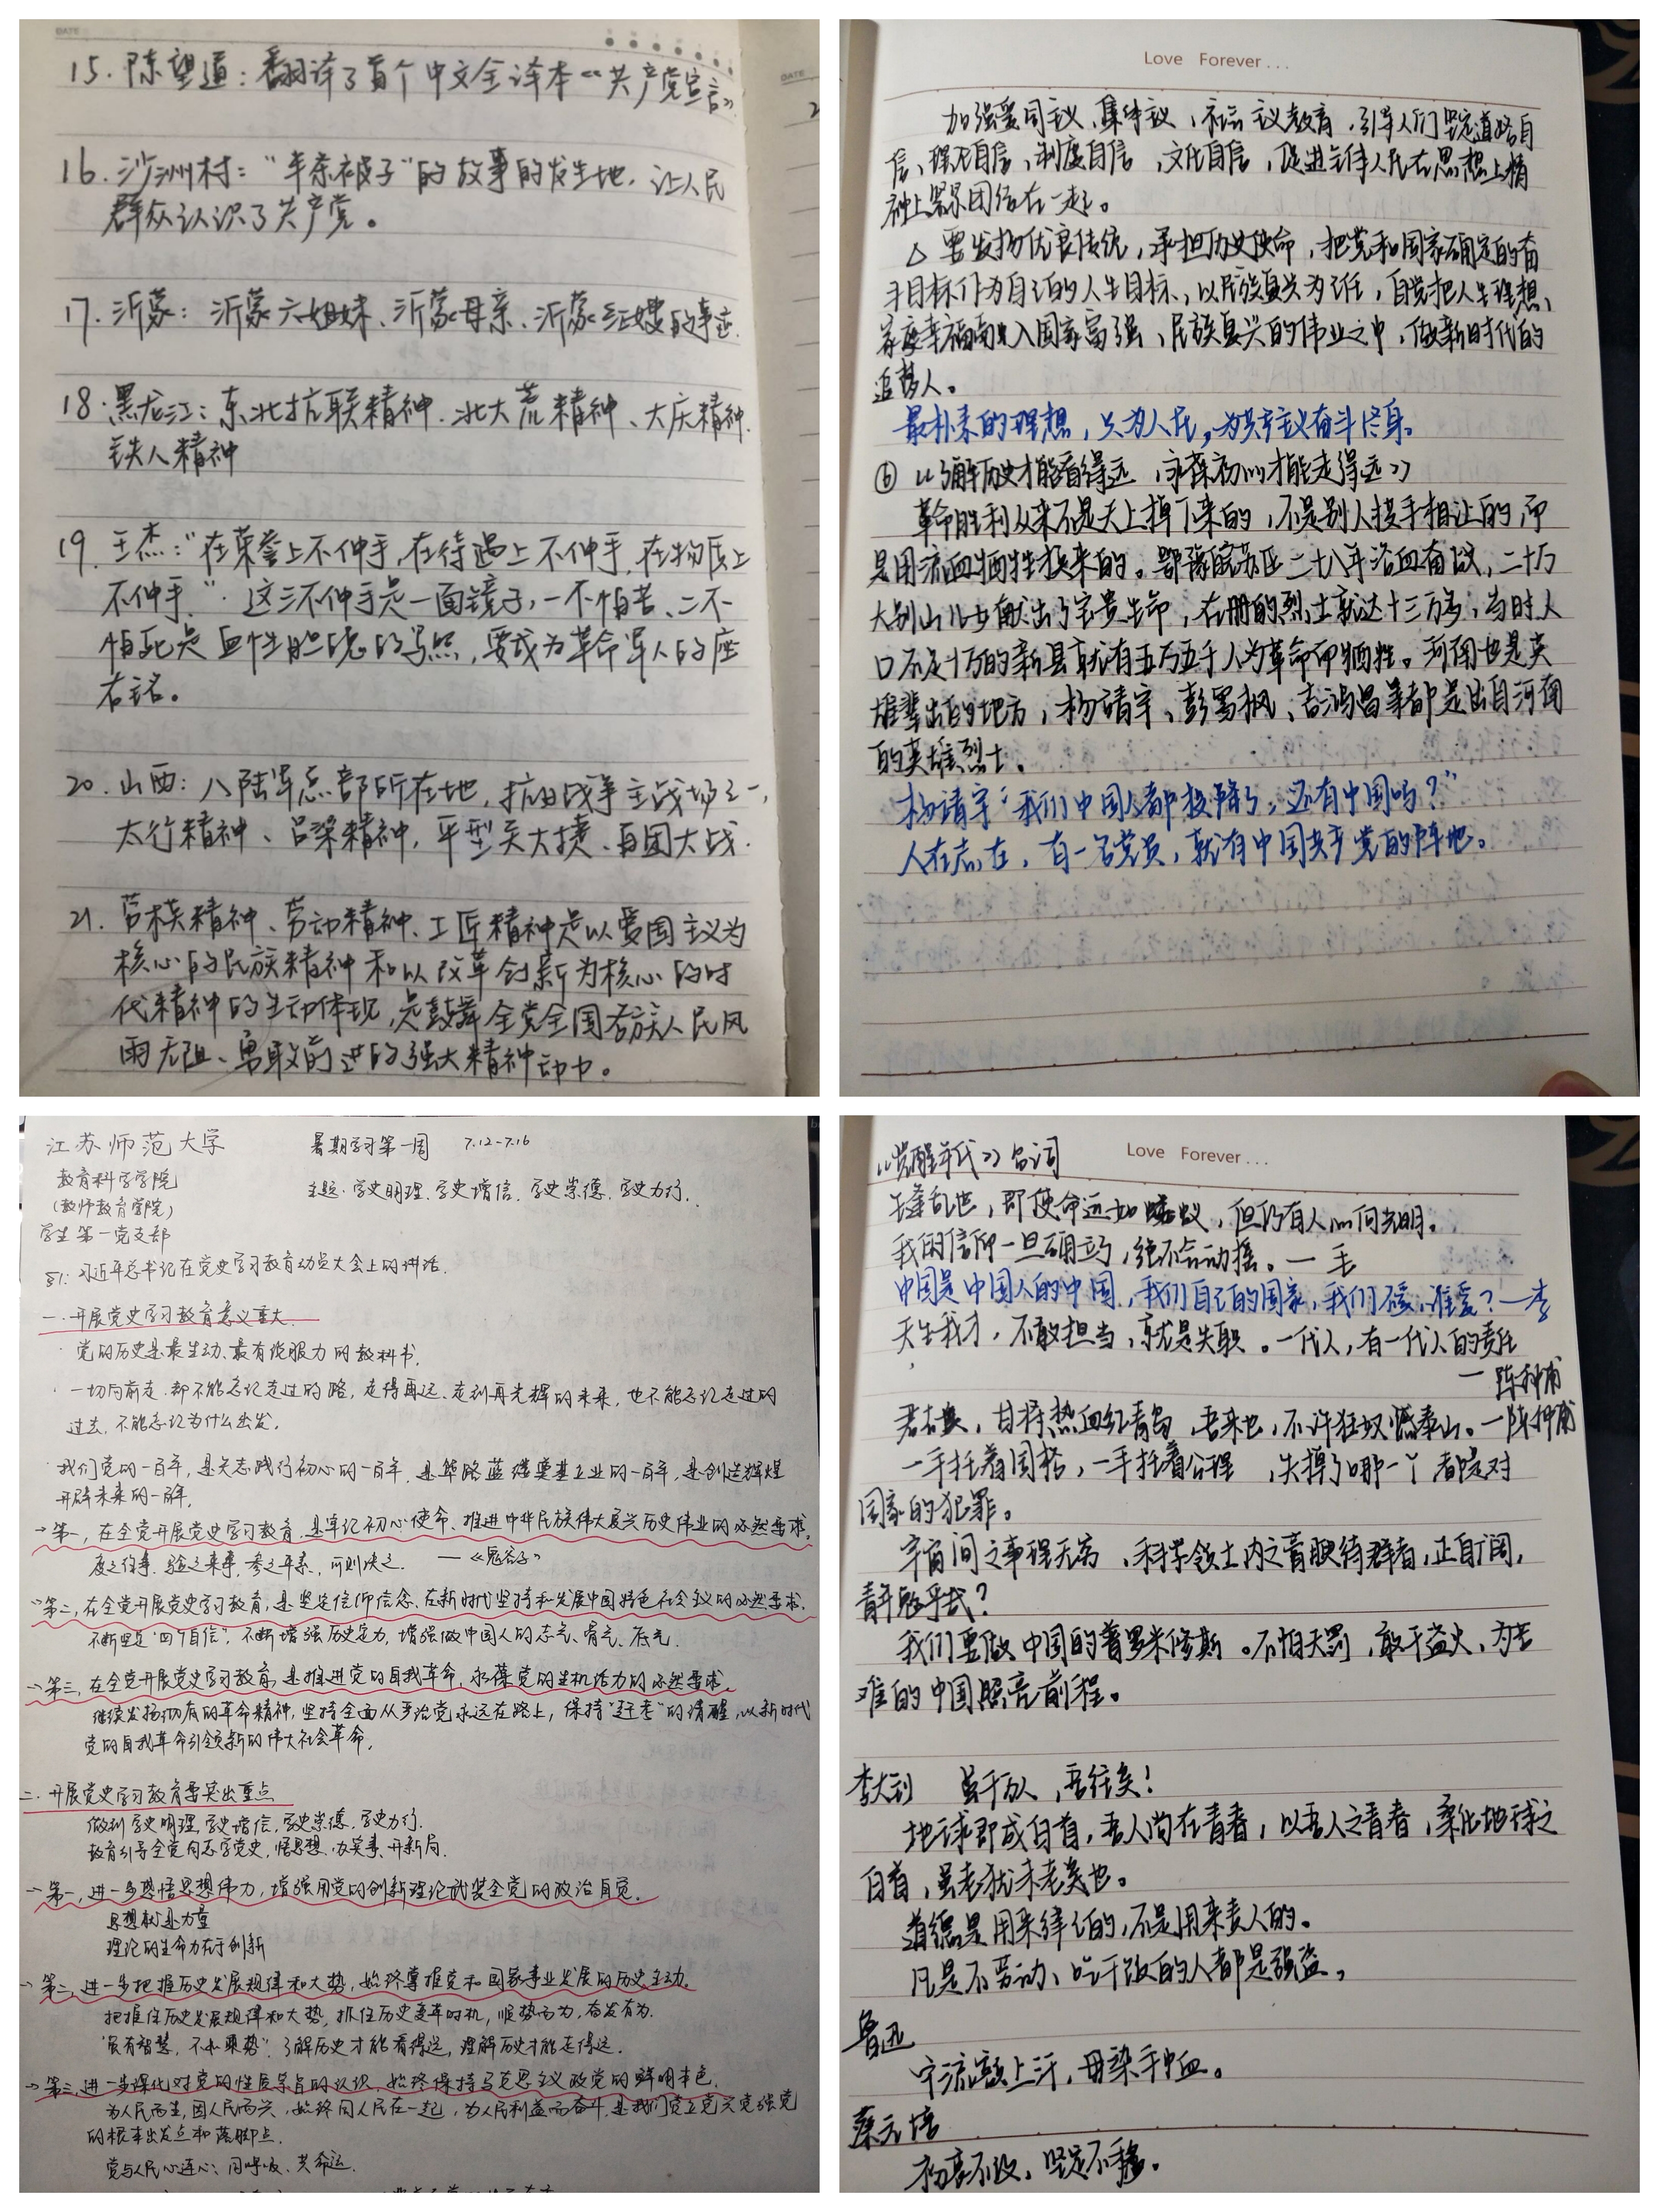 DATE
15. 陈望道：翻译了首个中文全译本《共产党宣言》
16. 沙洲村："半条被子"的故事的发生地，让人民
群众认识了共产党。
17. 沂蒙：沂蒙六姐妹、沂蒙母亲、沂蒙红嫂的事迹.
18. 黑龙江：东北抗联精神、北大荒精神、大庆精神.
铁人精神
19. 王杰："在荣誉上不伸手,在待遇上不伸手,在物质上
不伸手."这三不伸手是一面镜子,一不怕苦、二不
怕死是血性胆魄的写照,要成为革命军人的座
右铭。
20. 山西：八陆军总部所在地,抗日战争主战场之一,
太行精神、吕梁精神,平型关大捷、百团大战.
21. 劳模精神、劳动精神、工匠精神是以爱国主义为
核心的民族精神和以改革创新为核心的时
代精神的生动体现,是鼓舞全党全国各族人民风
雨无阻、勇敢前进的强大精神动力。
DATE
Love Forever...
加强爱国主义、集体主义、社会主义教育,引导人们坚定道路自
信、理论自信、制度自信、文化自信,促进全体人民在思想上精
神上紧紧团结在一起。
△ 要发扬优良传统,承担历史使命,把党和国家确定的奋
斗目标作为自己的人生目标,以民族复兴为己任,自觉把人生理想、
家庭幸福融入国家富强、民族复兴的伟业之中,做新时代的
追梦人。
最朴素的理想,只为人民,为共产主义奋斗终身。
⑥《了解历史才能看得远,永葆初心才能走得远》
革命胜利从来不是天上掉下来的,不是别人拱手相让的,而
是用流血牺牲换来的。鄂豫皖苏区二十八年浴血奋战,二十万
大别山儿女献出了宝贵生命,在册的烈士就达十三万多,当时人
口不足十万的新县就有五万五千人为革命而牺牲。河南也是英
雄辈出的地方,杨靖宇、彭雪枫、吉鸿昌等都是出自河南
的英雄烈士。
杨靖宇"我们中国人都投降了,还有中国吗?"
人在志在,有一名党员,就有中国共产党的阵地。
江苏师范大学
暑期学习第一周 7.12-7.16
教育科学学院
(教师教育学院)
主题：学史明理、学史增信、学史崇德、学史力行.
学生第一党支部
§1：习近平总书记在党史学习教育动员大会上的讲话.
一. 开展党史学习教育意义重大.
·党的历史是最生动、最有说服力的教科书.
·一切向前走,都不能忘记走过的路,走得再远、走到再光辉的未来,也不能忘记走过的
过去,不能忘记为什么出发.
·我们党的一百年,是矢志践行初心的一百年,是筚路蓝缕奠基立业的一百年,是创造辉煌
开辟未来的一百年.
→第一,在全党开展党史学习教育,是牢记初心使命、推进中华民族伟大复兴历史伟业的必然要求.
度之往事,验之来事,参之平素,可则决之. —《鬼谷子》
→第二,在全党开展党史学习教育,是坚定信仰信念、在新时代坚持和发展中国特色社会主义的必然要求.
不断坚定"四个自信",不断增强历史定力,增强做中国人的志气、骨气、底气.
→第三,在全党开展党史学习教育,是推进党的自我革命,永葆党的生机活力的必然要求.
继续发扬彻底的革命精神,坚持全面从严治党永远在路上,保持"赶考"的清醒,以新时代
党的自我革命引领新的伟大社会革命.
二. 开展党史学习教育要突出重点
做到学史明理,学史增信,学史崇德,学史力行.
教育引导全党同志学党史,悟思想,办实事,开新局.
→第一,进一步感悟思想伟力,增强用党的创新理论武装全党的政治自觉.
思想就是力量
理论的生命力在于创新
→第二,进一步把握历史发展规律和大势,始终掌握党和国家事业发展的历史主动.
把握住历史发展规律和大势,抓住历史变革时机,顺势而为,奋发有为.
"虽有智慧,不如乘势".了解历史才能看得远,理解历史才能走得远.
→第三,进一步深化对党的性质宗旨的认识,始终保持马克思主义政党的鲜明本色.
为人民而生,因人民而兴,始终同人民在一起,为人民利益而奋斗,是我们党立党兴党强党
的根本出发点和落脚点.
党与人民心连心、同呼吸、共命运.
《觉醒年代》台词
Love Forever...
生逢乱世,即使命运如蝼蚁,但仍有人心向光明。
我的信仰一旦确立了,绝不会动摇。—毛
中国是中国人的中国,我们自己的国家,我们不爱,谁爱?—李
天生我才,不敢担当,就是失职。一代人,有一代人的责任
—陈仲甫
若右眼,甘将热血红青岛,吾来也,不许狂奴撼泰山。—陈仲甫
一手托着国格,一手托着公理,失掉了哪一个都是对
国家的犯罪。
宇宙间之事理无穷,科学领土内之膏腴待辟者,正自广阔,
青年勉乎哉?
我们要做中国的普罗米修斯。不怕天罚,敢于盗火,为苦
难的中国照亮前程。
李大钊 虽千万人,吾往矣!
地球即成白首,吾人尚在青春,以吾人之青春,柔化地球之
白首,虽老犹未老矣也。
道德是用来律己的,不是用来责人的。
凡是不劳动、吃干饭的人都是强盗。
鲁迅
宁流额上汗,毋染手中血。
蔡元培
初衷不改,坚定不移。